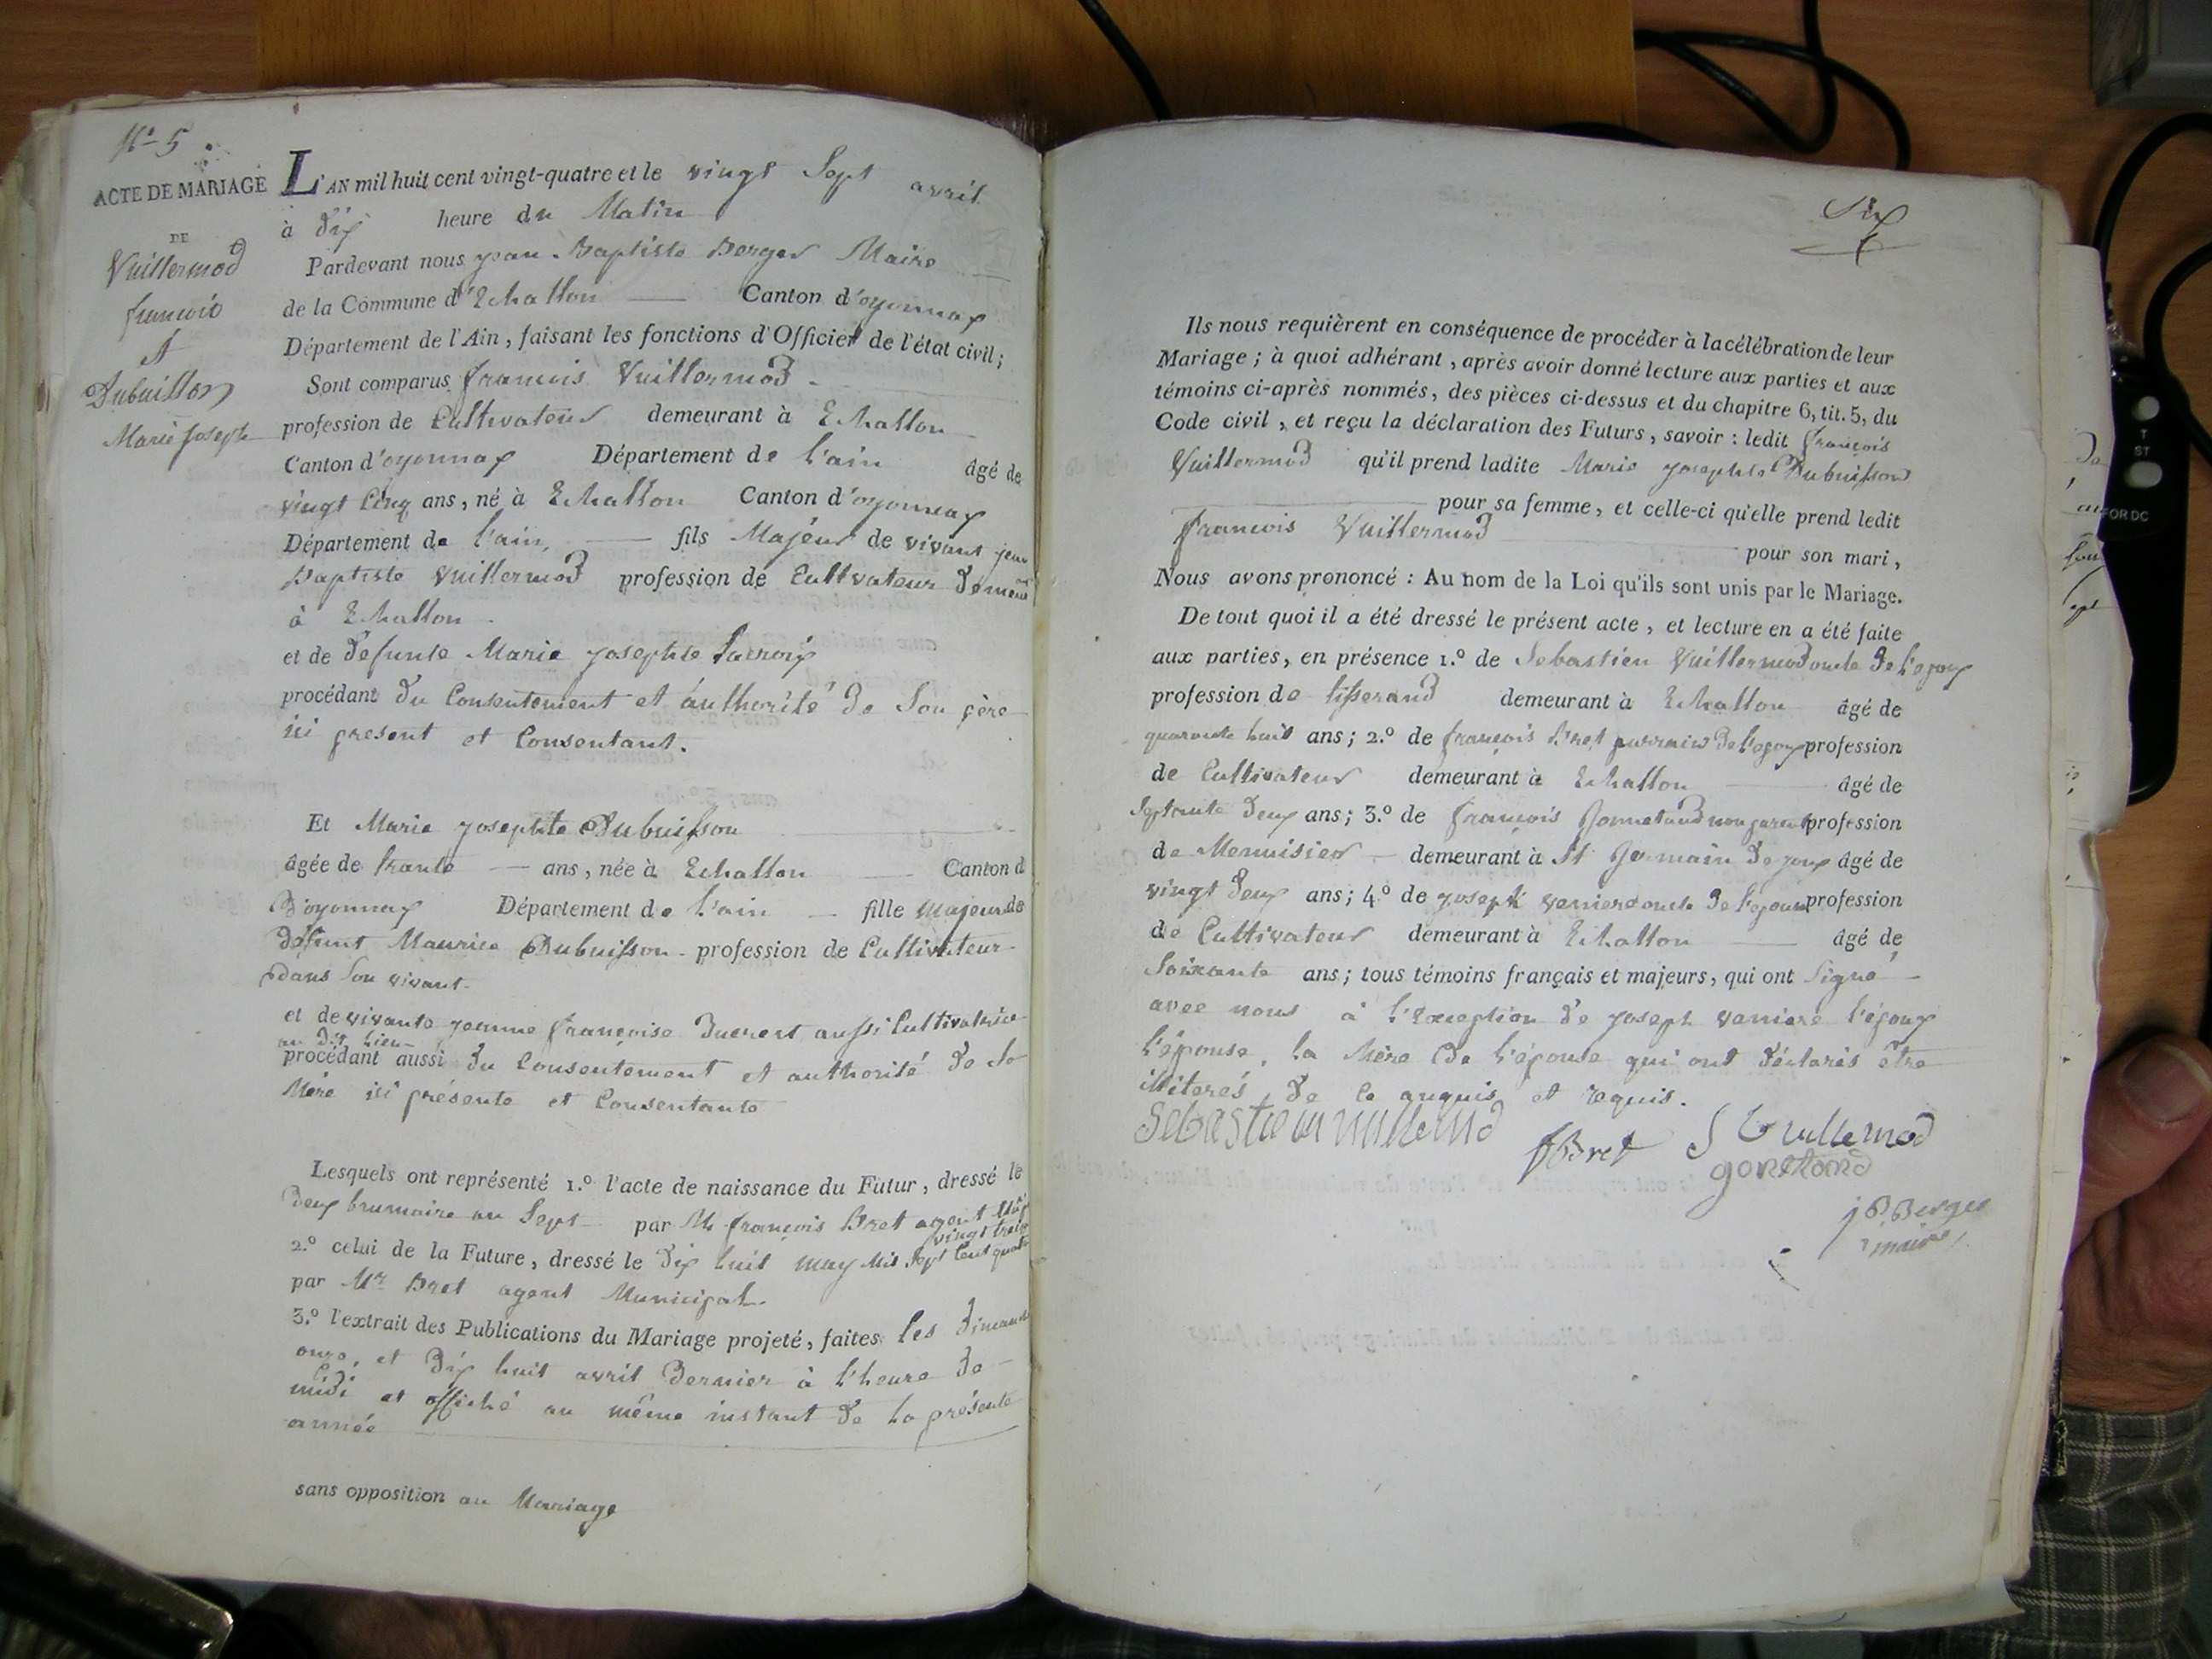 N° 5
ACTE DE MARIAGE
DE
Vuillermod
francois
et
Dubuisson
Marie Joseph
L'AN mil huit cent vingt-quatre et le vingt Sept avril
à dix heure du Matin
Pardevant nous jean Baptiste Berger Maire
de la Commune d'Echallon Canton d'oyonnax
Département de l'Ain, faisant les fonctions d'Officier de l'état civil;
Sont comparus francois Vuillermod
profession de Cultivateur demeurant à Echallon
Canton d'oyonnax Département de l'ain âgé de
vingt Cinq ans, né à Echallon Canton d'oyonnax
Département de l'ain, fils Majeur de vivant jean
Baptiste Vuillermod profession de Cultivateur demeurant
à Echallon
et de defunte Marie josephte Lacroix
procédant du Consentement et authorité de Son père
ici present et Consentant.
Et Marie josephte Dubuisson
âgée de trante ans, née à Echallon Canton d
D'oyonnax Département de l'ain fille majeur de
defunt Maurice Dubuisson profession de Cultivateur
dans Son vivant
et de vivante jeanne françoise Ducrest aussi Cultivatrice
au dit lieu
procédant aussi du Consentement et authorité de Sa
Mère ici présente et Consentante
Lesquels ont représenté 1.º l'acte de naissance du Futur, dressé le
deux brumaire an Sept par M. françois Bret agent
2.º celui de la Future, dressé le dix huit may Mil Sept Cent quatre
vingt treize
par Mr Bret agent Municipal
3.º l'extrait des Publications du Mariage projeté, faites les dimanche
onze, et dix huit avril dernier à l'heure de
midi et affiché au même instant de la présente
année
sans opposition au Mariage
Six
Ils nous requièrent en conséquence de procéder à la célébration de leur
Mariage; à quoi adhérant, après avoir donné lecture aux parties et aux
témoins ci-après nommés, des pièces ci-dessus et du chapitre 6, tit. 5, du
Code civil, et reçu la déclaration des Futurs, savoir: ledit françois
Vuillermod qu'il prend ladite Marie josephte Dubuisson
pour sa femme, et celle-ci qu'elle prend ledit
francois Vuillermod
pour son mari,
Nous avons prononcé: Au nom de la Loi qu'ils sont unis par le Mariage.
De tout quoi il a été dressé le présent acte, et lecture en a été faite
aux parties, en présence 1.º de Sebastien Vuillermod oncle de l'epoux
profession de tisserand demeurant à Echallon âgé de
quarante huit ans; 2.º de françois Bret parrain de l'epoux profession
de Cultivateur demeurant à Echallon âgé de
Septante deux ans; 3.º de françois Gonnetand non parent profession
de Menuisier demeurant à St Germain de joux âgé de
vingt deux ans; 4.º de joseph vaniere oncle de l'epouse profession
de Cultivateur demeurant à Echallon âgé de
Soixante ans; tous témoins français et majeurs, qui ont Signé
avec nous à l'exception de joseph vaniere l'époux
l'épouse, la Mère de l'épouse qui ont déclarés être
illiterés, de ce anquis et requis.
Sebastien vuillermod
f Bret
J B vuillemod
gonetand
j B Berger
maire
T
ST
FOR DC